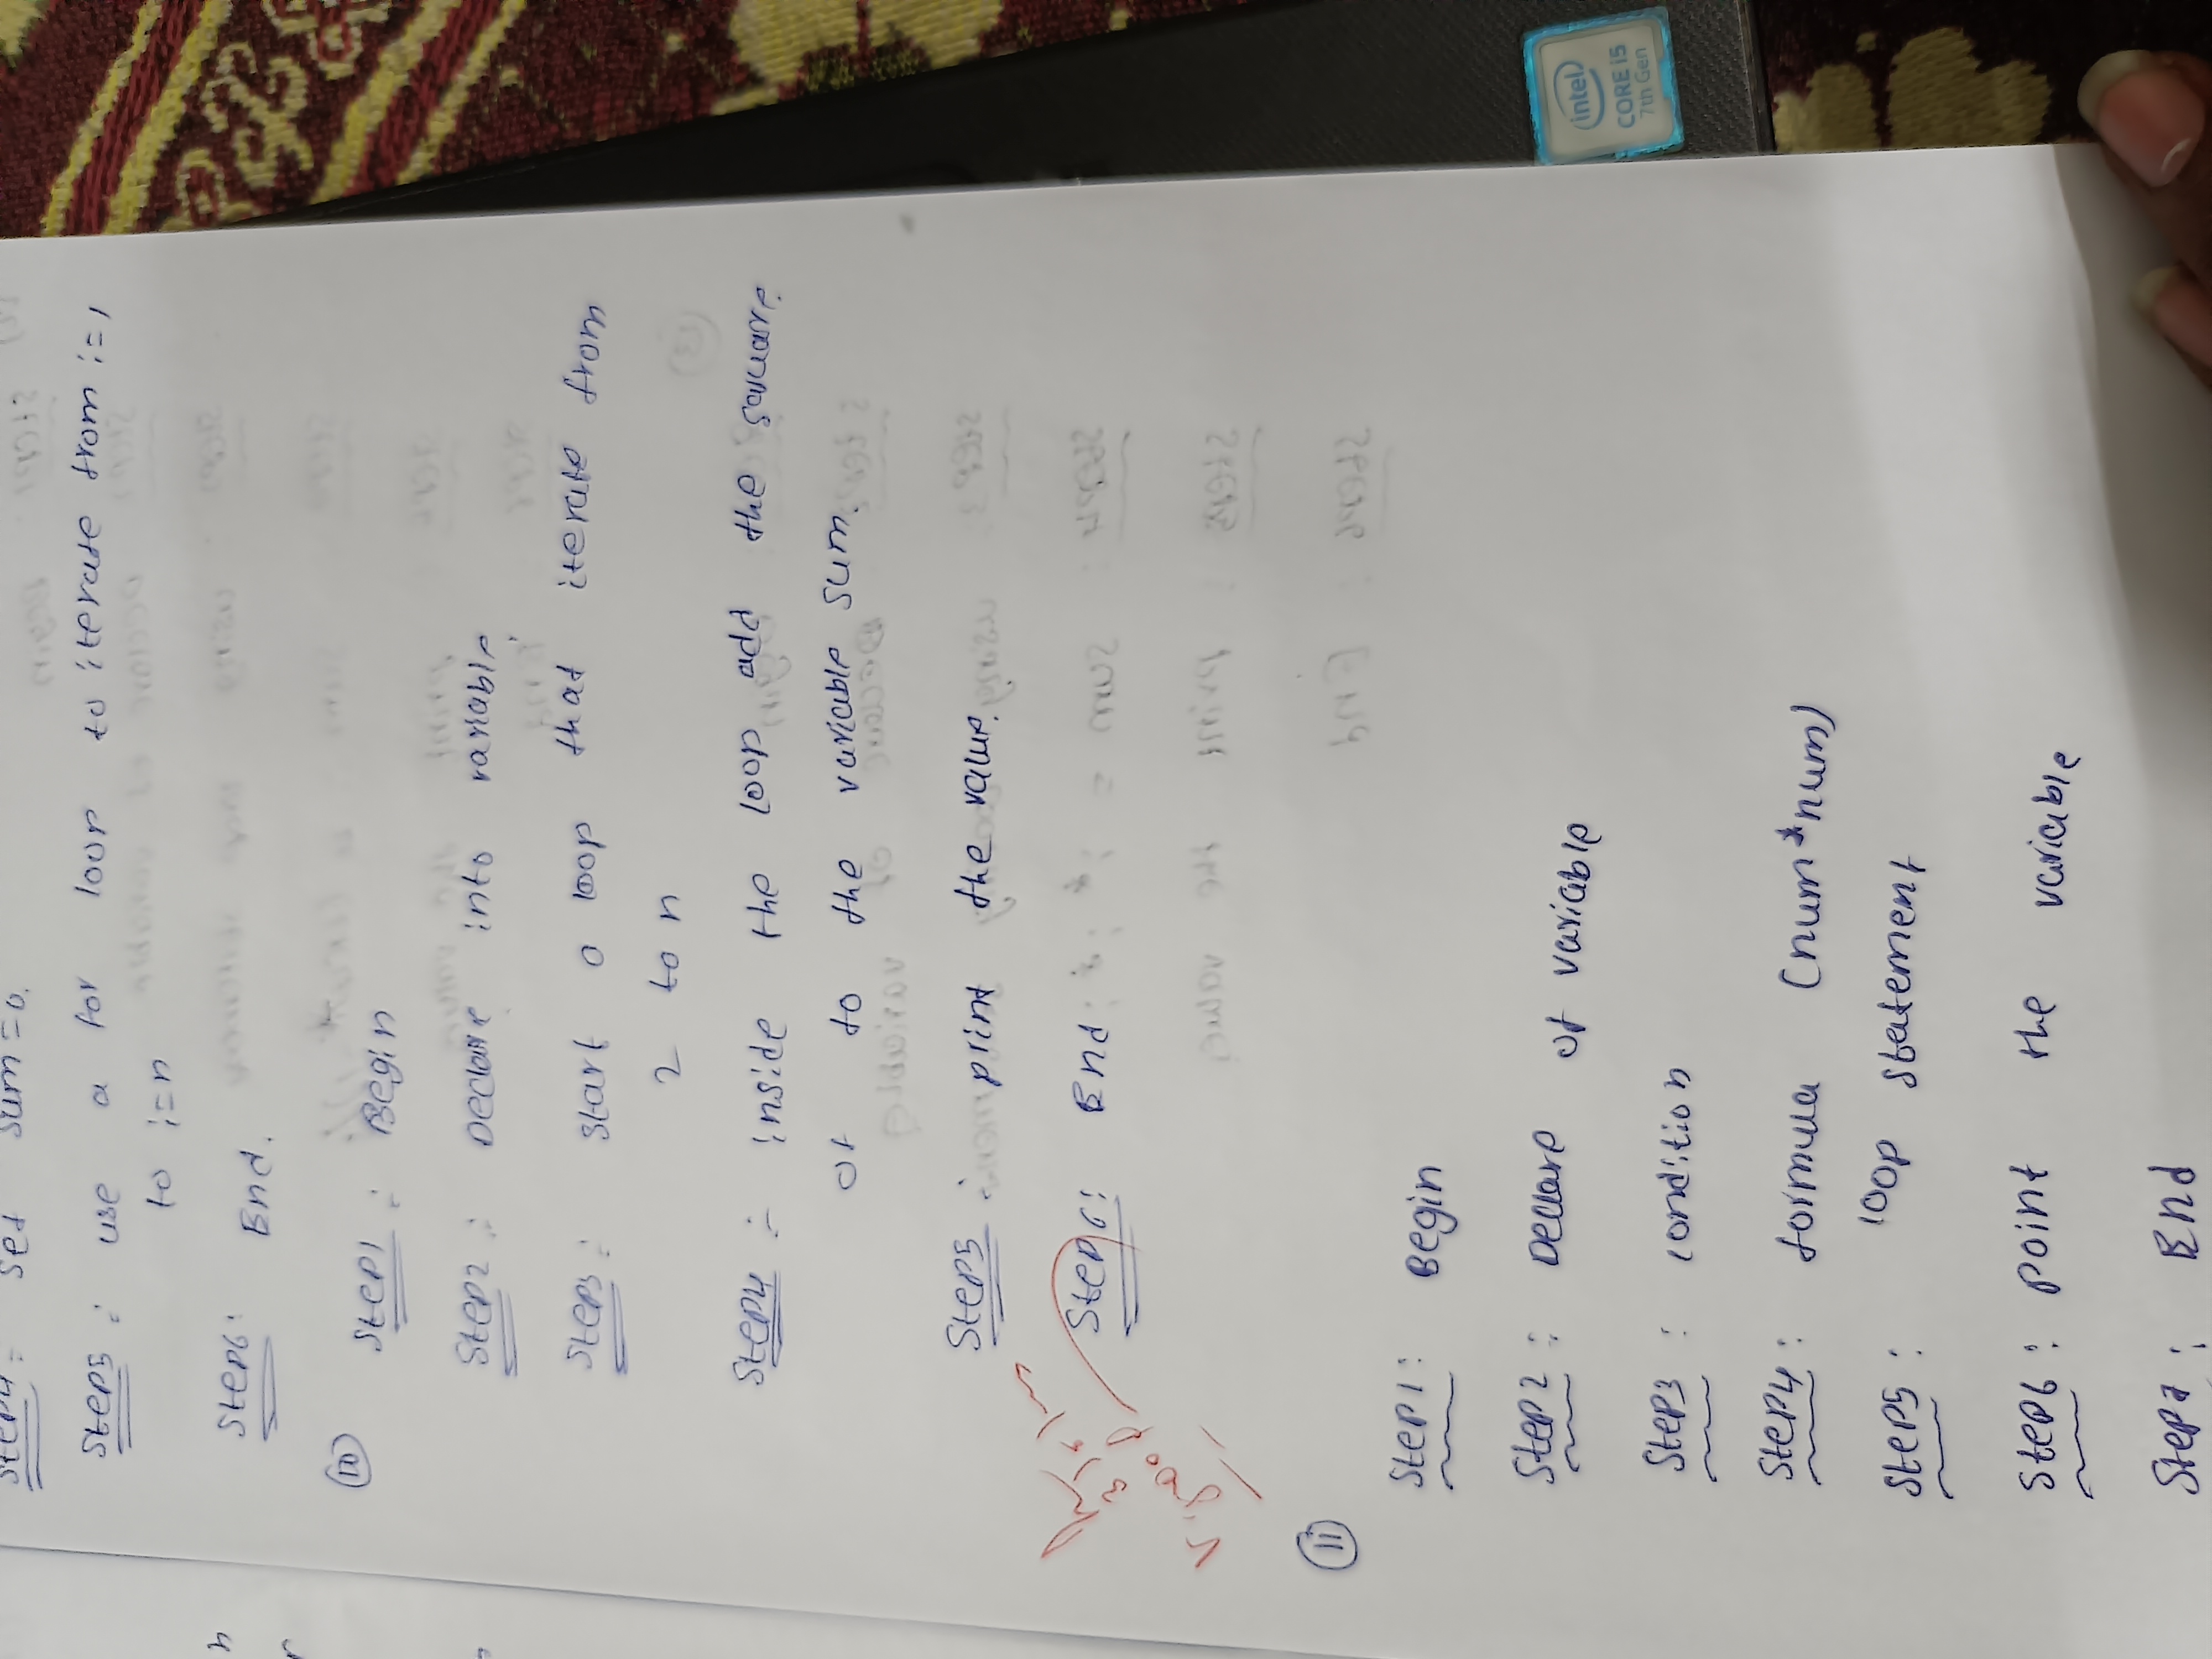 Step4: set sum=0.
Step5: use a for loop to iterate from i=1
to i=n
Step6: End.
10
Step1: Begin
Step2: Declare into variable
Step3: Start a loop that iterate from
2 to n
Step4: inside the loop add the square
of to the variable sum.
Step5: print the value.
Step6: End.
11
Step1: Begin
Step2: Declare of variable
Step3: condition
Step4: formula (num*num)
Step5: loop statement
Step6: point the variable
Step7: End
intel
CORE i5
7th Gen